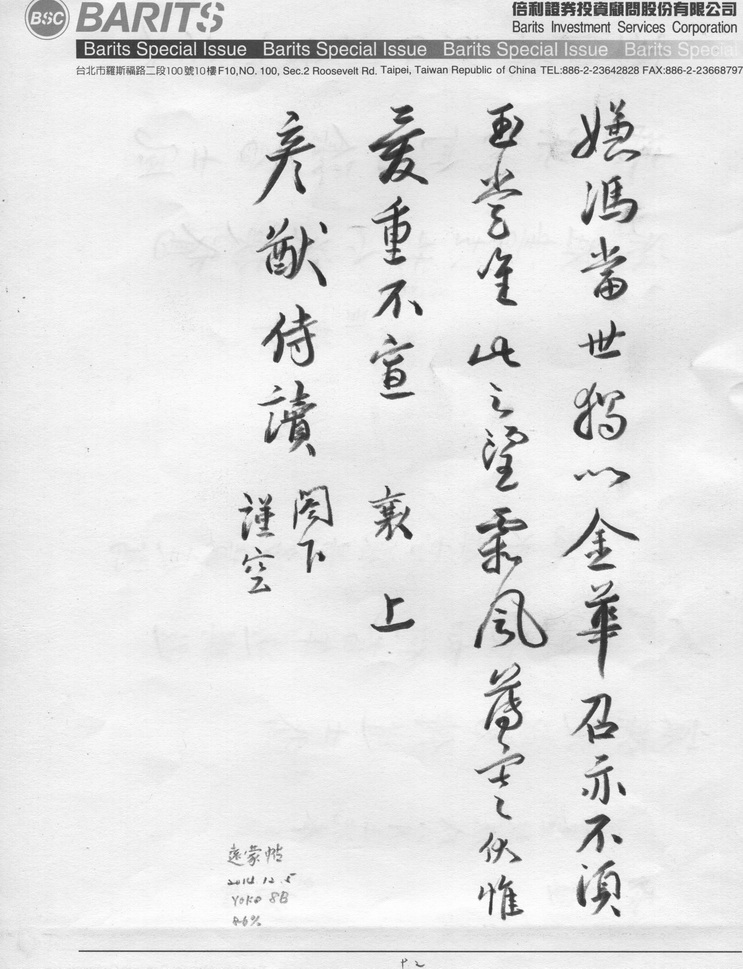 BSC BARITS
倍利證券投資顧問股份有限公司
Barits Investment Services Corporation
Barits Special Issue Barits Special Issue Barits Special Issue Barits Special
台北市羅斯福路二段100號10樓F10,NO. 100, Sec.2 Roosevelt Rd. Taipei, Taiwan Republic of China TEL:886-2-23642828 FAX:886-2-23668797
嫌馮當世獨以金華召亦不須
玉堂唯此之望霜風薄寒伏惟
愛重不宣 襄上
彥猷侍讀 閣下
謹空
遠蒙帖
2014.12.5
YOKO 8B
P.2